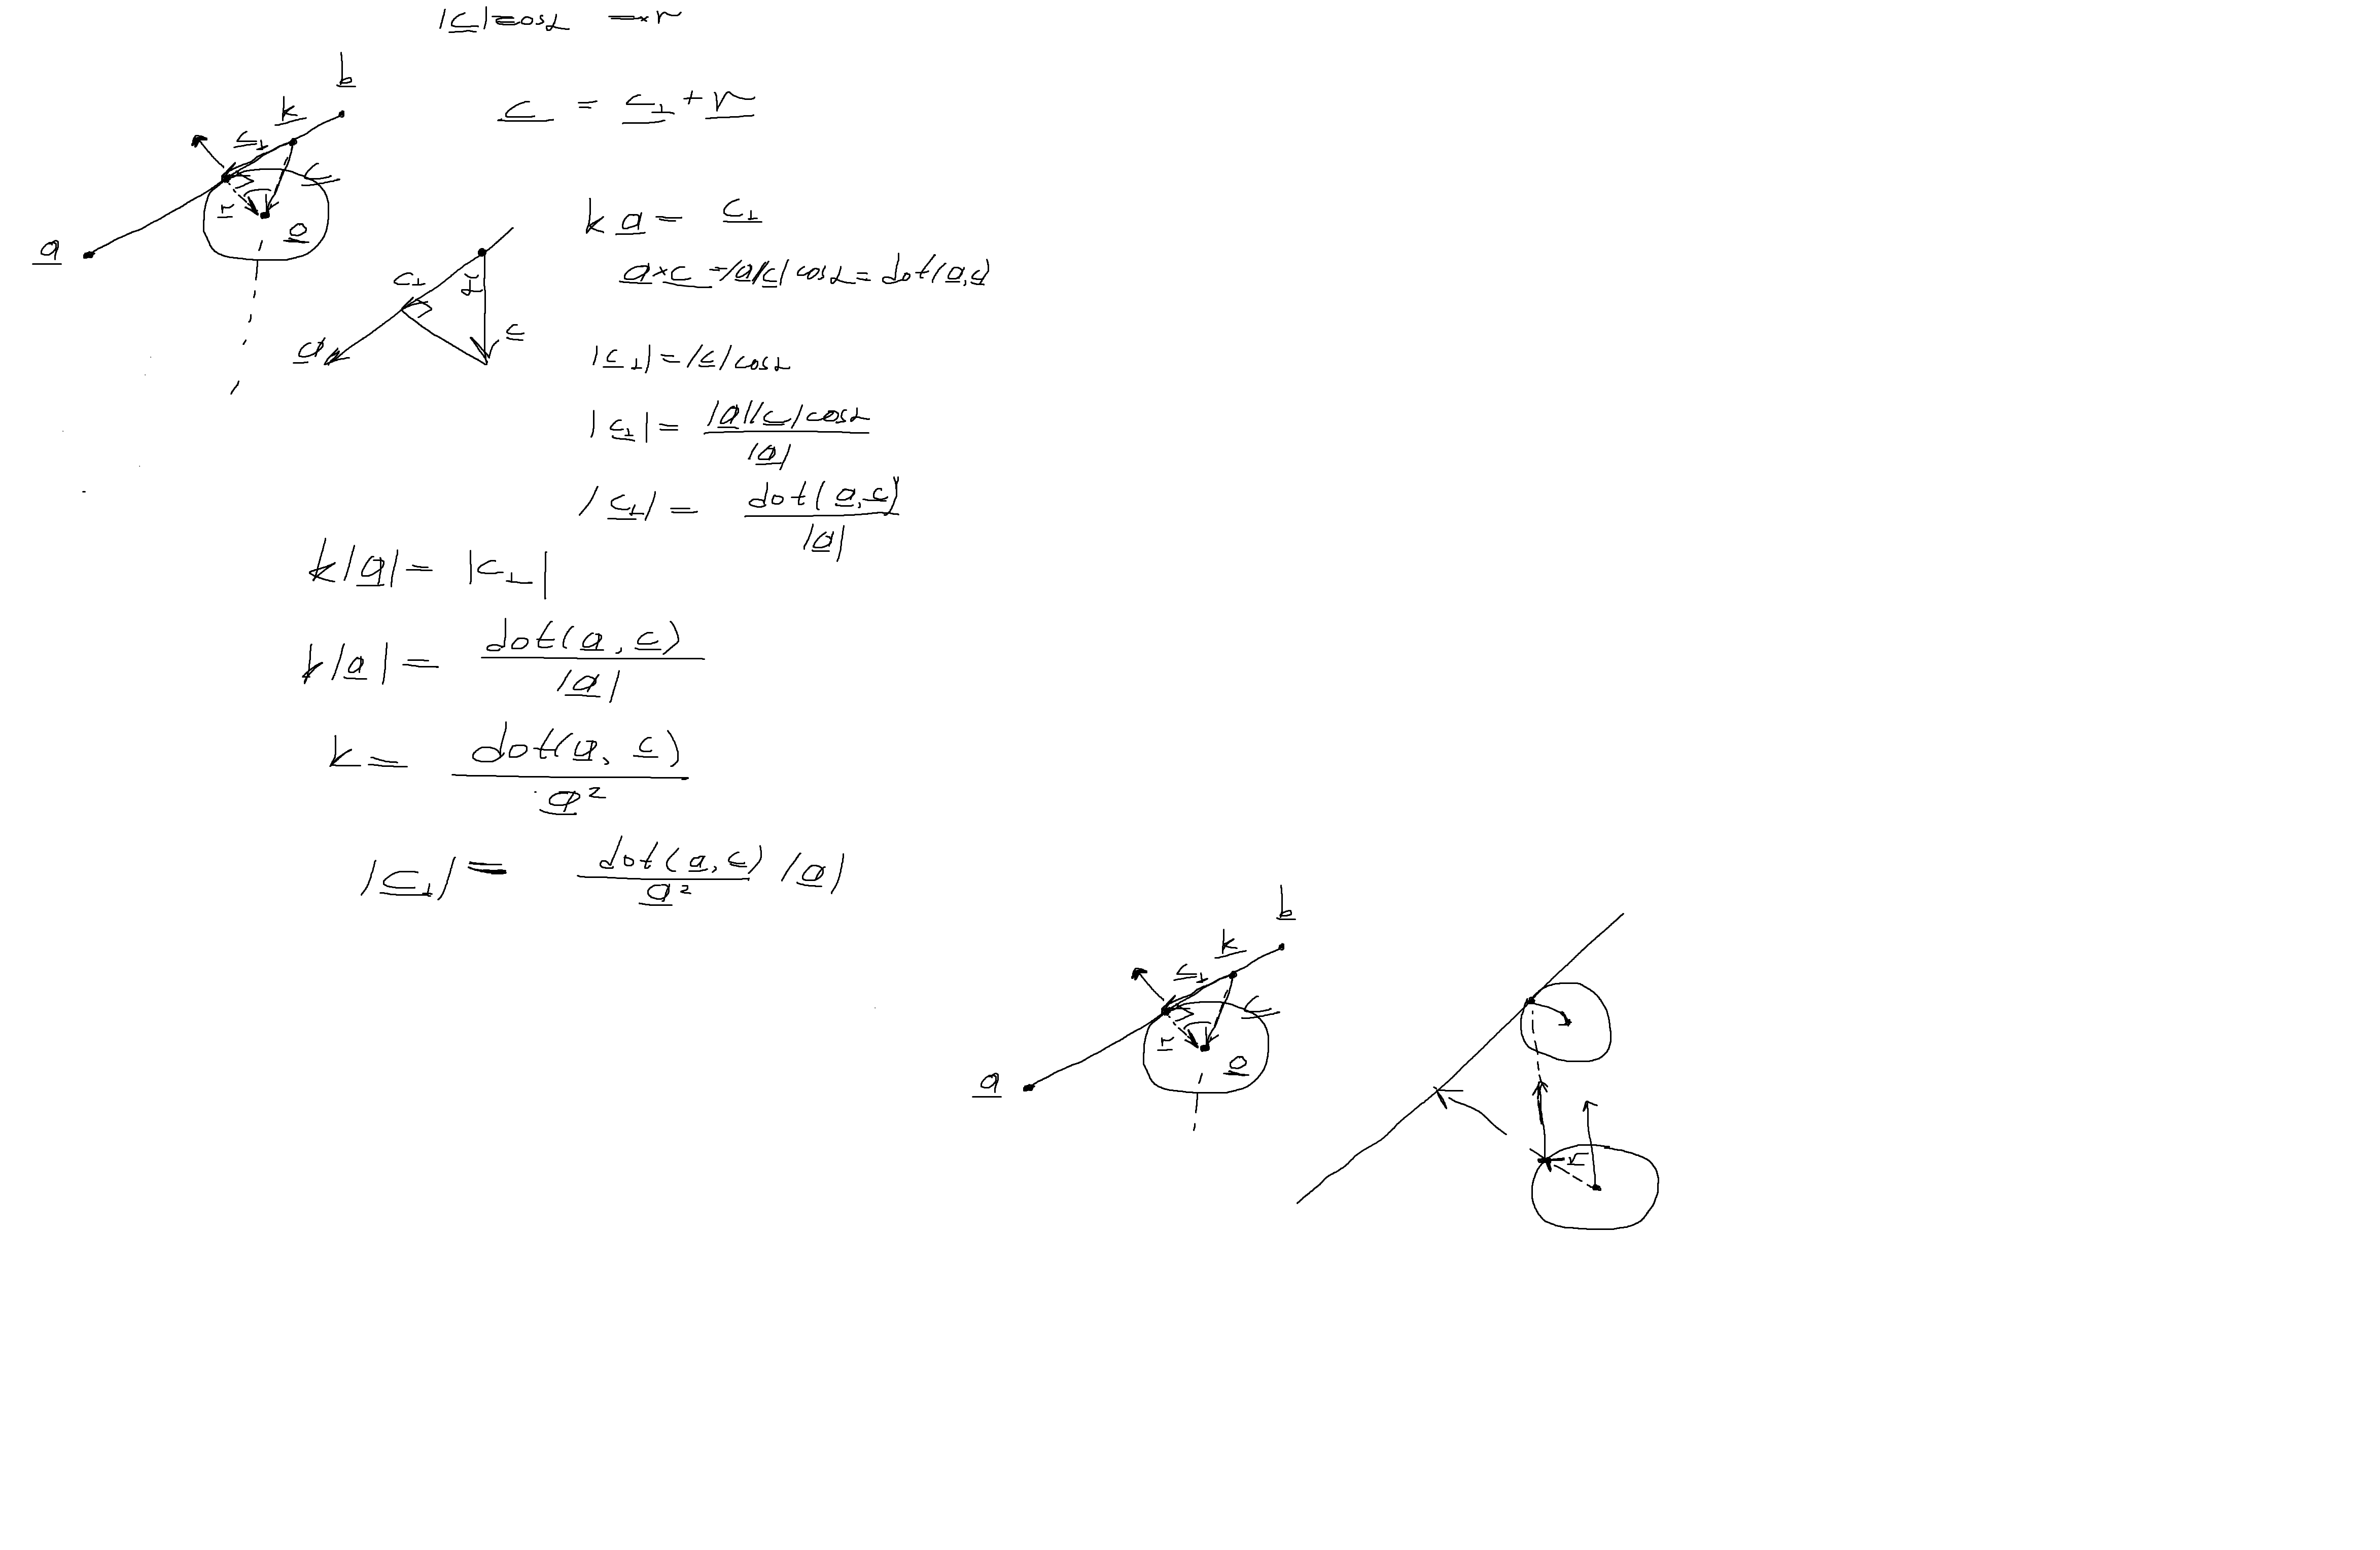 |c|cosα = r
b
c = c⊥ + r
k
c⊥
c
r
o
a
k a = c⊥
a×c = |a||c| cosα = dot(a,c)
c⊥
α
c
a
|c⊥| = |c| cosα
|c⊥| = |a||c| cosα / |a|
|c⊥| = dot(a,c) / |a|
k|a| = |c⊥|
k|a| = dot(a, c) / |a|
k = dot(a, c) / a²
|c⊥| = dot(a,c) / a² |a|
b
k
c⊥
c
r
o
a
r